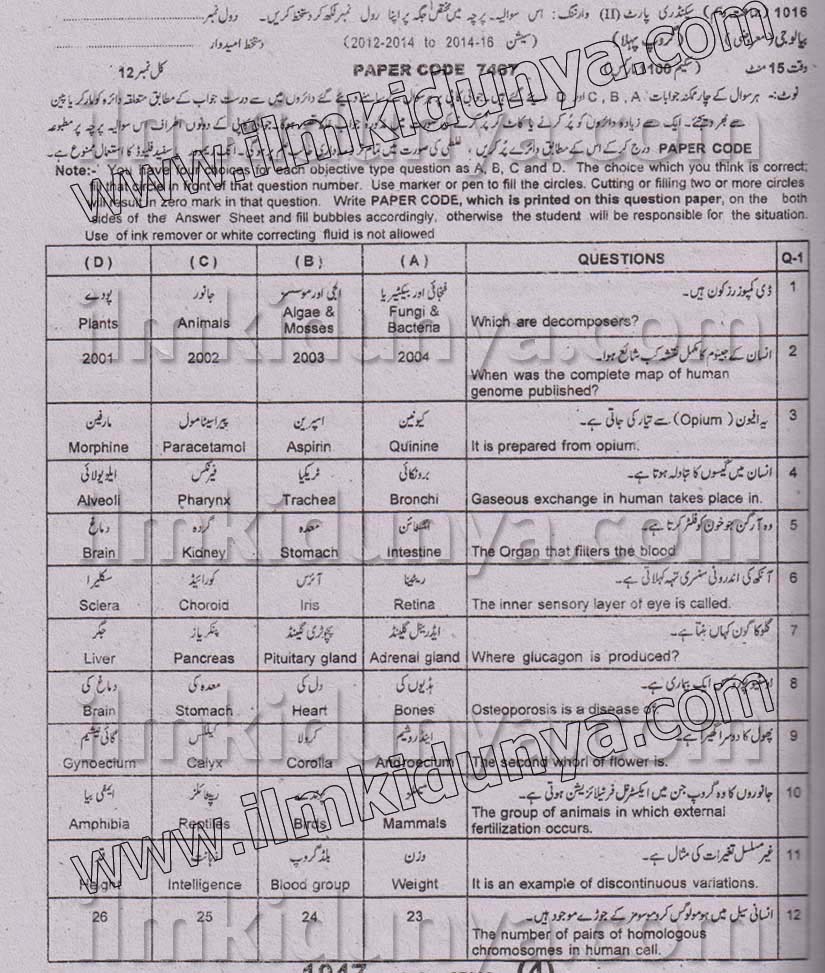 1016 سیکنڈری پارٹ (II) وارننگ: اس سوالیہ پرچہ میں مختص جگہ پر اپنا رول نمبر لکھ کر دستخط کریں۔ رول نمبر
بیالوجی (معروضی) (گروپ پہلا) (سیشن 2012-2014 to 2014-16) دستخط امیدوار
وقت 15 منٹ PAPER CODE 7467 کل نمبر 12
نوٹ:- ہر سوال کے چار ممکنہ جوابات A ,B ,C اور D
PAPER CODE درج کر کے اس کے مطابق دائرے پُر کریں،
Note:- You have four choices for each objective type question as A, B, C and D. The choice which you think is correct;
fill that circle in front of that question number. Use marker or pen to fill the circles. Cutting or filling two or more circles
will result in zero mark in that question. Write PAPER CODE, which is printed on this question paper, on the both
sides of the Answer Sheet and fill bubbles accordingly, otherwise the student will be responsible for the situation.
Use of ink remover or white correcting fluid is not allowed
(D) (C) (B) (A) QUESTIONS Q-1
پودے جانور الجی اور موسسز فنجائی اور بیکٹیریا ڈی کمپوزرز کون ہیں۔ 1
Plants Animals Algae & Mosses Fungi & Bacteria Which are decomposers?
2001 2002 2003 2004 انسان کے جینوم کا مکمل نقشہ کب شائع ہوا۔ 2
When was the complete map of human
genome published?
مارفین پیراسیٹامول اسپرین کیونین یہ افیون (Opium) سے تیار کی جاتی ہے۔ 3
Morphine Paracetamol Aspirin Quinine It is prepared from opium.
ایلویولائی فیرنکس ٹریکیا برونکائی انسان میں گیسوں کا تبادلہ ہوتا ہے۔ 4
Alveoli Pharynx Trachea Bronchi Gaseous exchange in human takes place in.
دماغ گردہ معدہ انٹسٹائن وہ آرگن جو خون کو فلٹر کرتا ہے۔ 5
Brain Kidney Stomach Intestine The Organ that filters the blood
سکلیرا کورائیڈ آئرس ریٹینا آنکھ کی اندرونی سنسری تہہ کہلاتی ہے۔ 6
Sclera Choroid Iris Retina The inner sensory layer of eye is called.
جگر پنکریاز پچوٹری گلینڈ ایڈرینل گلینڈ گلوکاگون کہاں بنتا ہے۔ 7
Liver Pancreas Pituitary gland Adrenal gland Where glucagon is produced?
دماغ کی معدہ کی دل کی ہڈیوں کی ایک بیماری ہے۔ 8
Brain Stomach Heart Bones Osteoporosis is a disease of
گائی نیشیم کیلکس کرولا اینڈروشیم پھول کا دوسرا گھیرا ہے۔ 9
Gynoecium Calyx Corolla Androecium The second whorl of flower is.
ایمفی بیا رپٹائلز پرندے میملز جانوروں کا وہ گروپ جن میں ایکسٹرنل فرٹیلائزیشن ہوتی ہے۔ 10
Amphibia Reptiles Birds Mammals The group of animals in which external
fertilization occurs.
بلڈ گروپ وزن غیر مسلسل تغیرات کی مثال ہے۔ 11
Height Intelligence Blood group Weight It is an example of discontinuous variations.
26 25 24 23 انسانی سیل میں ہومولوگس کروموسومز کے جوڑے موجود ہیں۔ 12
The number of pairs of homologous
chromosomes in human cell.
www.ilmkidunya.com
www.ilmkidunya.com
ilmkidunya.com